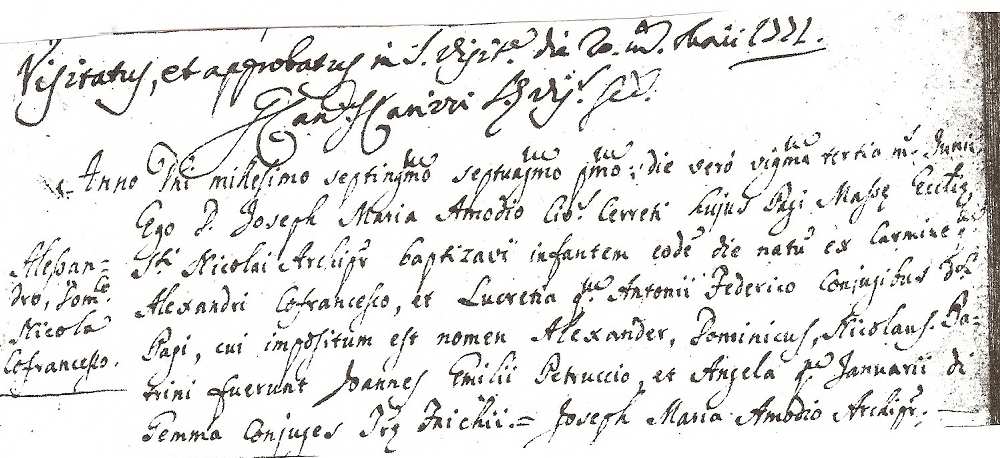 Visitatus, et approbatus in S. Visit.e die 20. m. Maii 1771.
Anno Dni millesimo septingmo septuagmo pmo: die vero vigma tertia m. Junii
Ego D. Joseph Maria Amodio Civ. Cerreti hujus Pagi Massę Ecclię
Sti Nicolai Archipr baptizavi infantem eode die natu ex Carmine qm
Alexandri Cofrancesco, et Lucretia qm Antonii Federico Conjugibus
Papi, cui impositum est nomen Alexander, Dominicus, Nicolaus. Pa=
trini fuerunt Joannes Emilii Petruccio, et Angela qm Januarii di
Gemma Conjuges = Joseph Maria Amodio Archipr.
Alessan=
dro, Dom.co
Nicola
Cofrancesco.